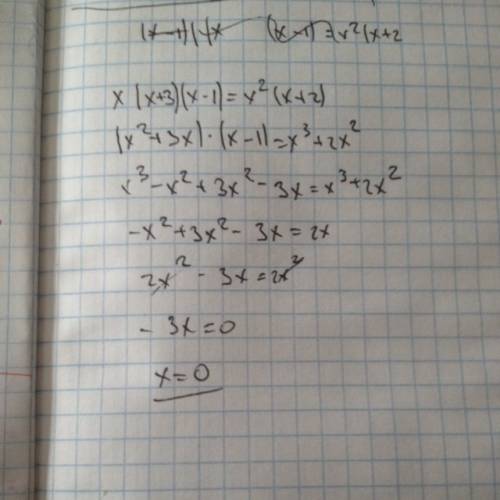 x(x+3)(x-1)=x²(x+2)
(x²+3x)·(x-1)=x³+2x²
x³-x²+3x²-3x=x³+2x²
-x²+3x²-3x=2x
2x²-3x=2x²
-3x=0
x=0